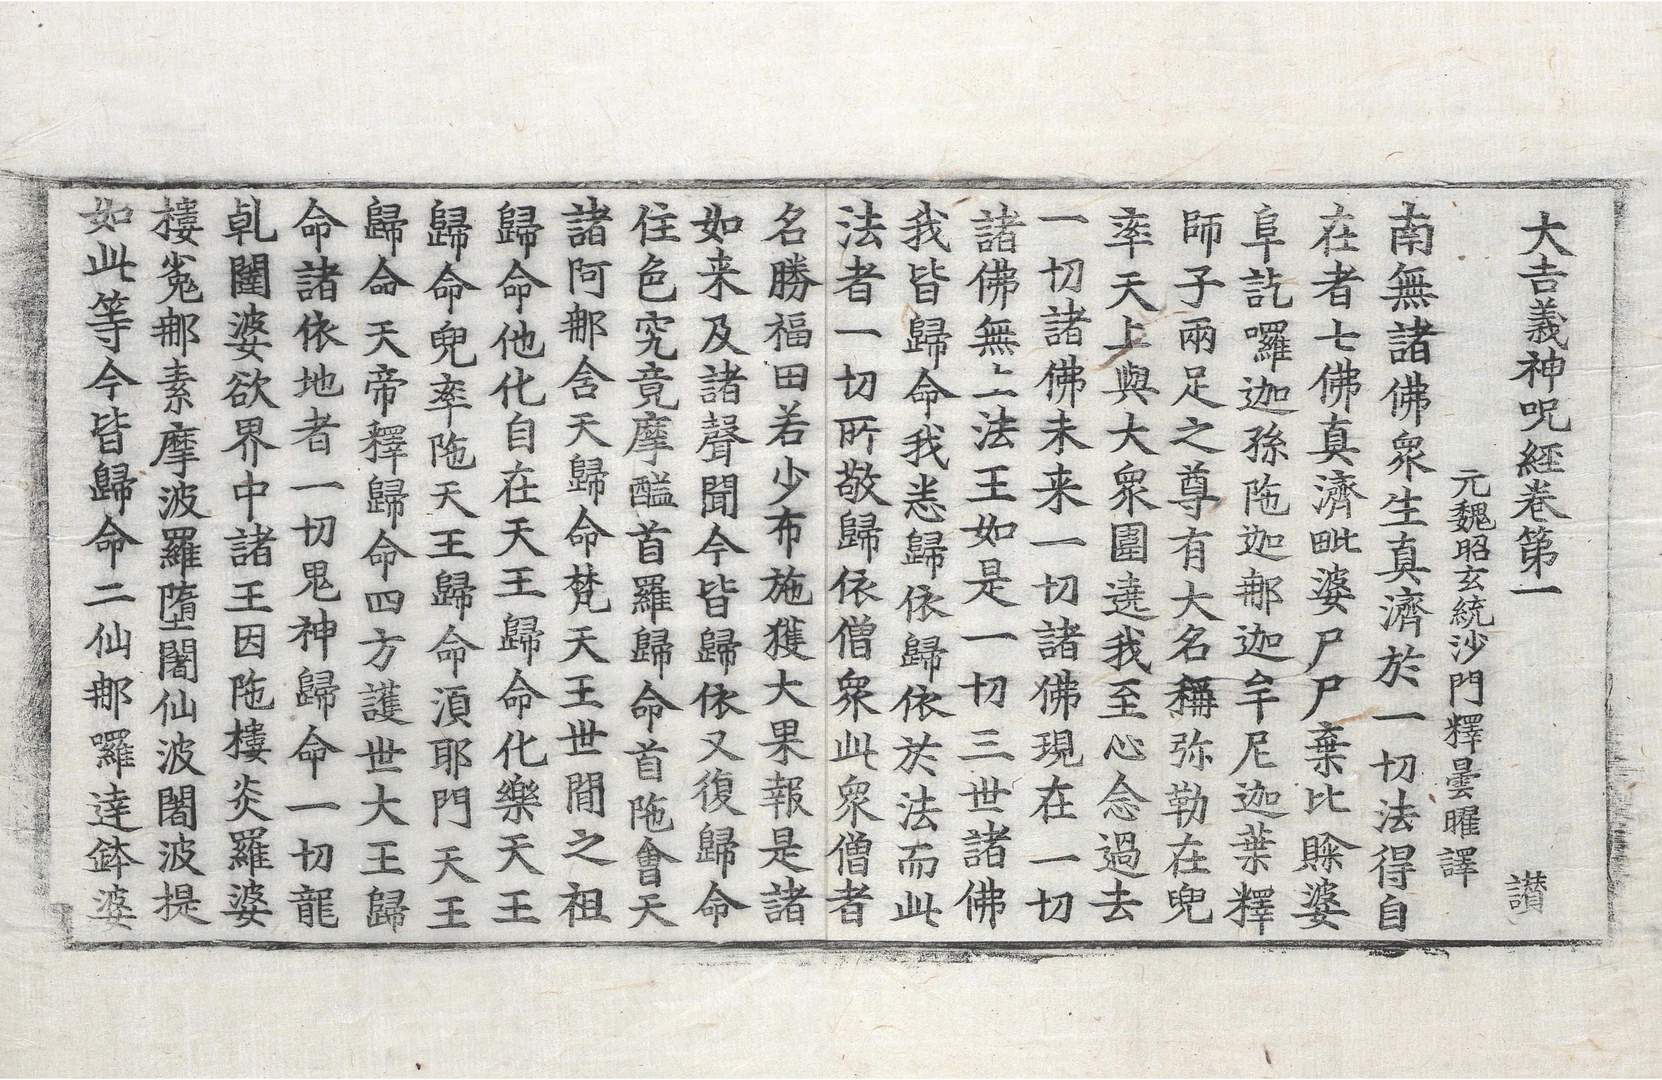 大吉義神呪經卷第一 讃
元魏昭玄統沙門釋曇曜譯
南無諸佛衆生真濟於一切法得自
在者七佛真濟毗婆尸尸棄比賒婆
阜訖囉迦孫陁迦郍迦牟尼迦葉釋
師子兩足之尊有大名稱弥勒在兜
率天上與大衆圍遶我至心念過去
一切諸佛未来一切諸佛現在一切
諸佛無上法王如是一切三世諸佛
我皆歸命我恙歸依歸依於法而此
法者一切所敬歸依僧衆此衆僧者
名勝福田若少布施獲大果報是諸
如来及諸聲聞今皆歸依又復歸命
住色究竟摩醯首羅歸命首陁會天
諸阿郍含天歸命梵天王世間之祖
歸命他化自在天王歸命化樂天王
歸命兜率陁天王歸命湏耶門天王
歸命天帝釋歸命四方護世大王歸
命諸依地者一切鬼神歸命一切龍
乹闥婆欲界中諸王因陁樓炎羅婆
樓㝹郍素摩波羅墮闍仙波闍波提
如此等今皆歸命二仙郍囉達鉢婆